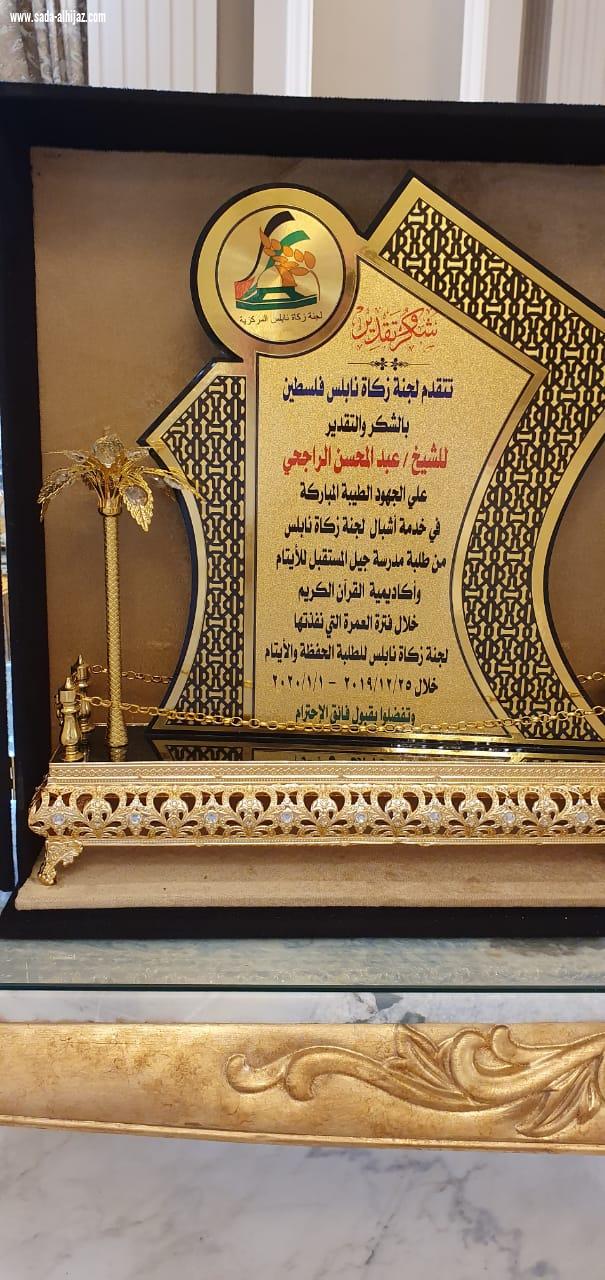 www.sada-alhijaz.com
لجنة زكاة نابلس المركزية
شكر وتقدير
تتقدم لجنة زكاة نابلس فلسطين
بالشكر والتقدير
للشيخ / عبد المحسن الراجحي
علي الجهود الطيبة المباركة
في خدمة أشبال لجنة زكاة نابلس
من طلبة مدرسة جيل المستقبل للأيتام
وأكاديمية القرآن الكريم
خلال فترة العمرة التي نفذتها
لجنة زكاة نابلس للطلبة الحفظة والأيتام
خلال ٢٠١٩/١٢/٢٥ - ٢٠٢٠/١/١
وتفضلوا بقبول فائق الاحترام